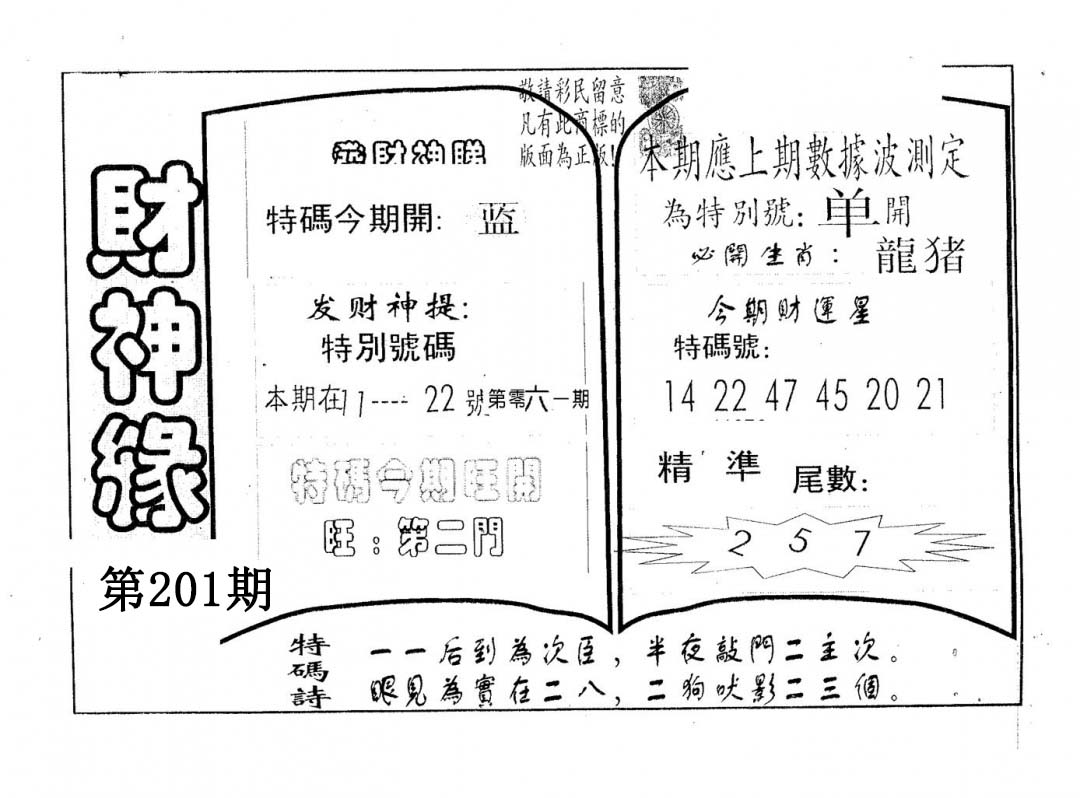 財神緣
第201期
敬請彩民留意
凡有此商標的
版面為正版!
特碼今期開: 蓝
发财神提:
特別號碼
本期在11----22號第零六一期
特碼今期旺開
旺:第二門
本期應上期數據波測定
為特別號:单開
必開生肖: 龍猪
今期財運星
特碼號:
14 22 47 45 20 21
精準 尾數:
2 5 7
特碼詩
一一后到為次臣,半夜敲門二主次。
眼見為實在二八,二狗吠影二三個。